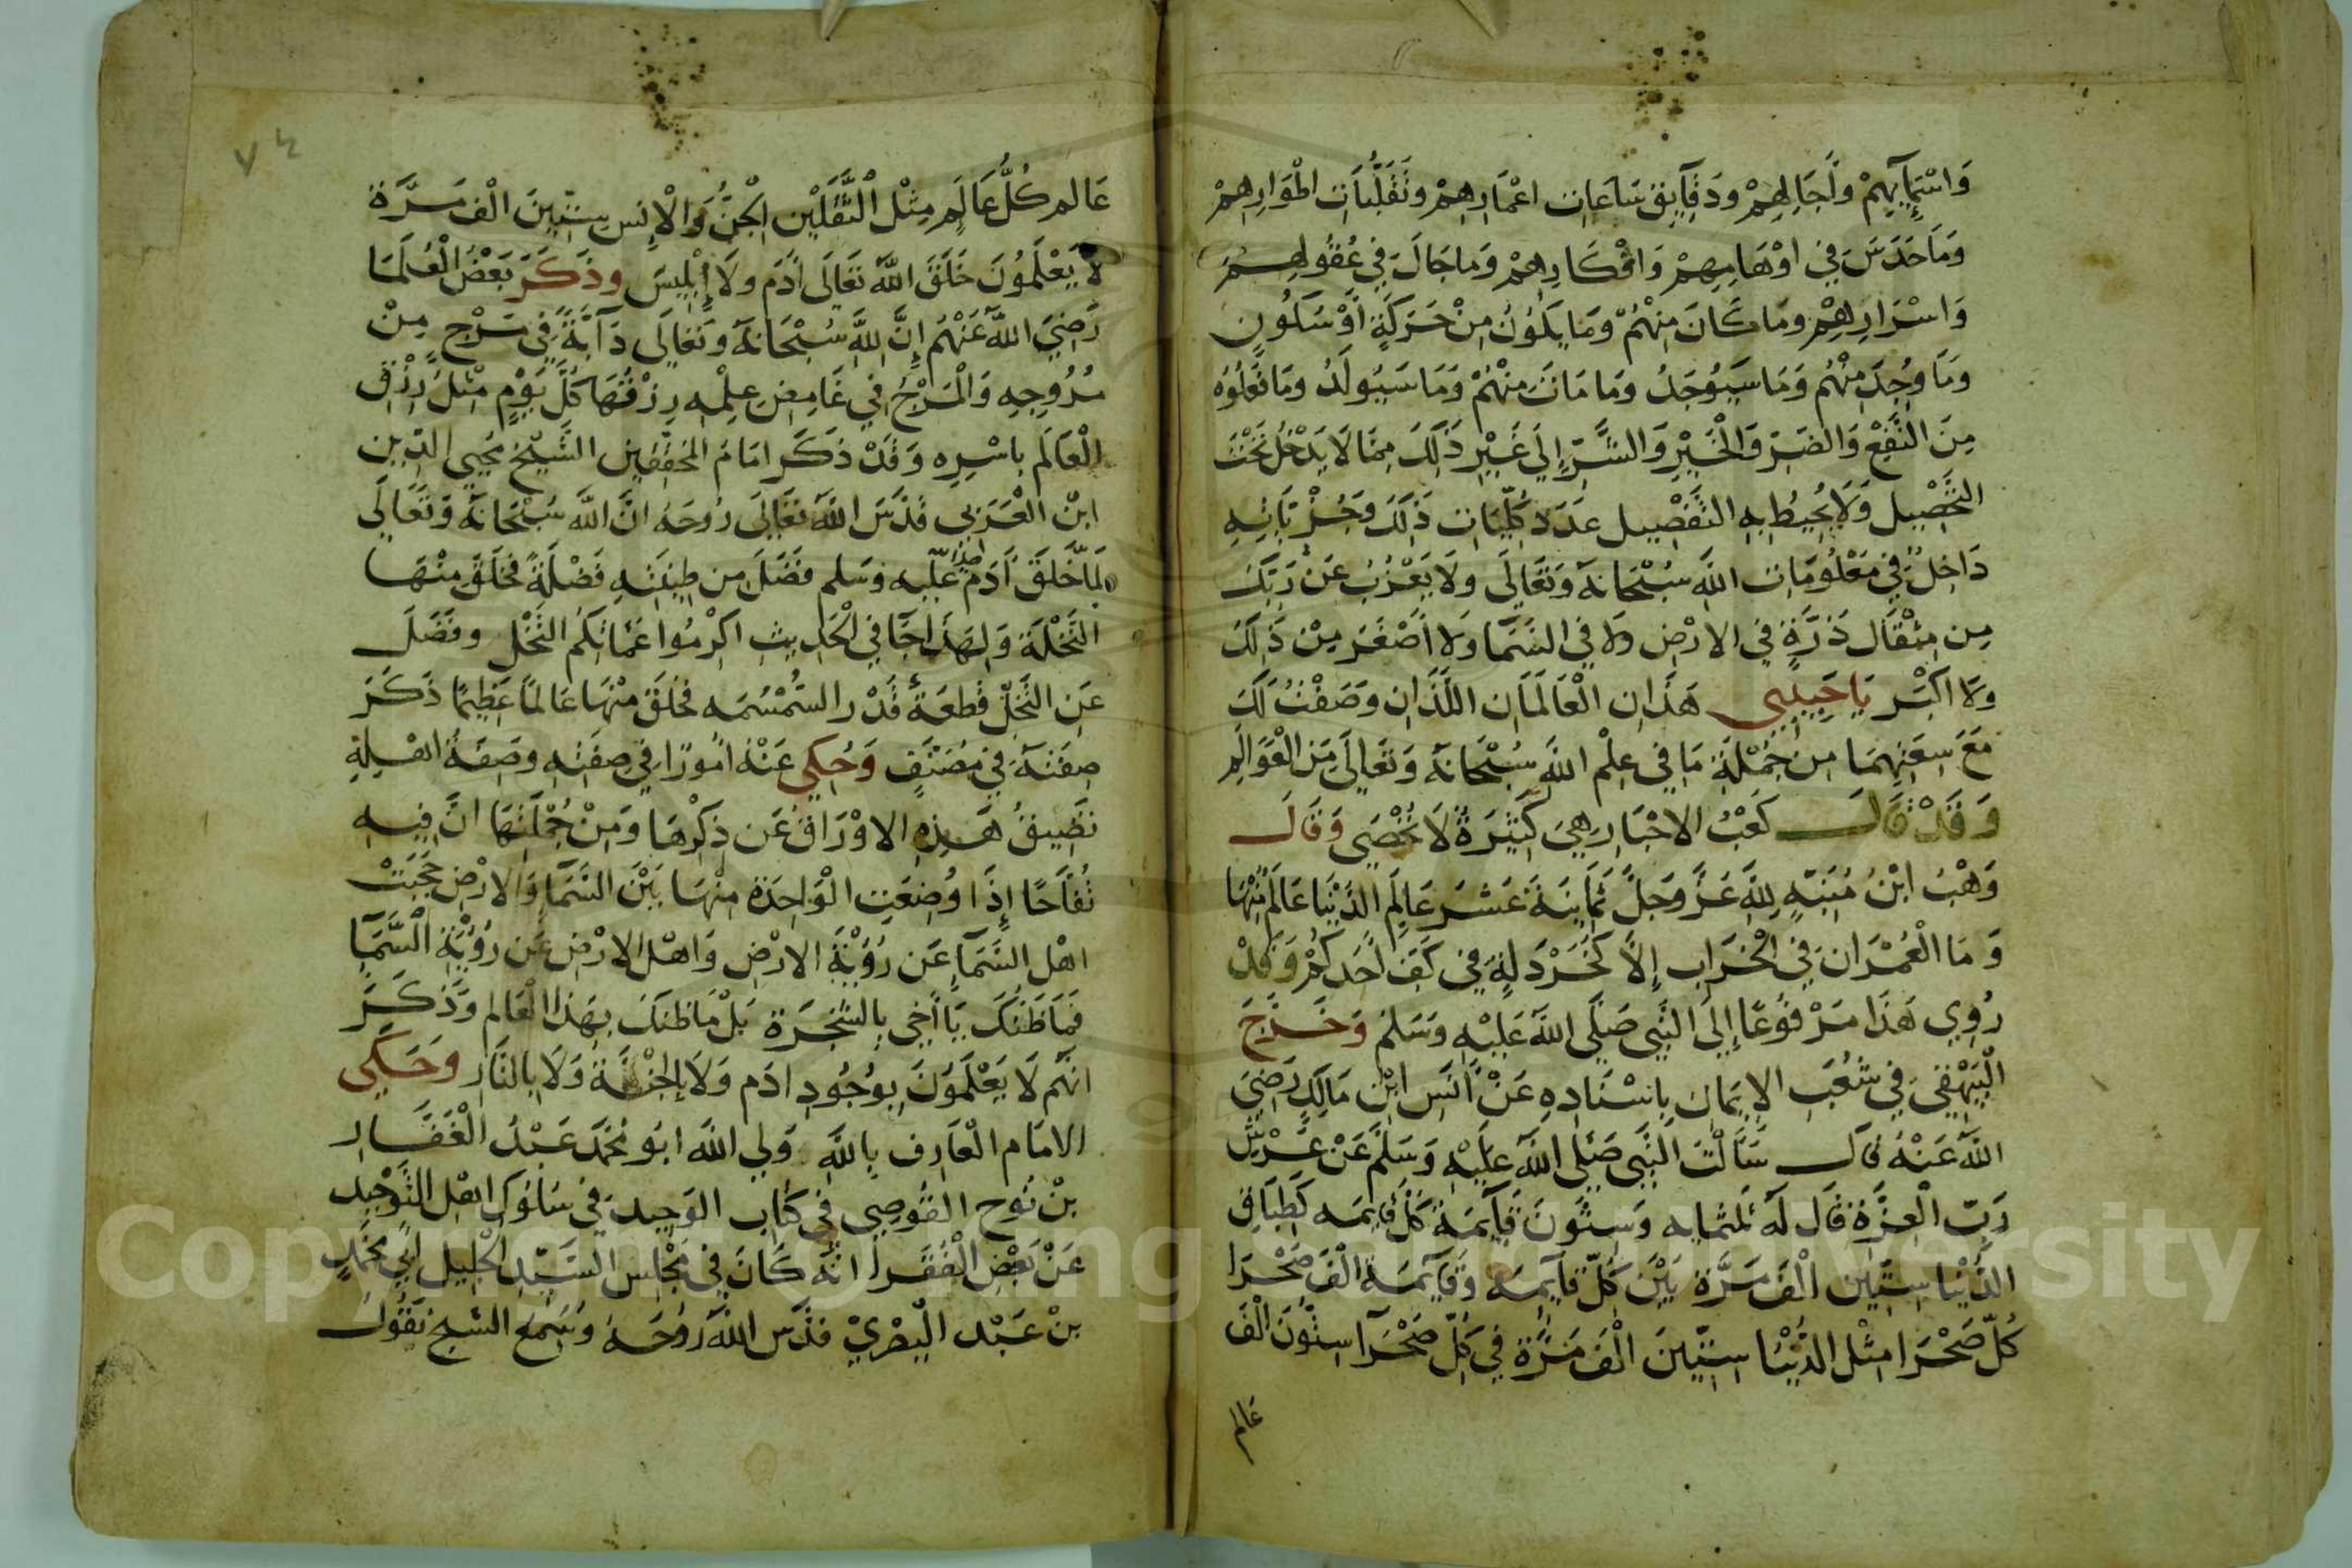 وَاسْمَآيِهِمْ واَجَالِهِمْ ودَقَآيِقِ سَاعَاتِ اعْمَارِهِمْ وتَقَلُّبَاتِ اطْوَارِهِمْ
وَمَا حَدَسَ فِي اوْهَامِهِمْ وَافْكَارِهِمْ وَمَا جَالَ فِي عُقُولِهِمْ
وَاسْرَارِهِمْ ومَا كَانَ مِنهُمْ ومَا يَكُونُ مِنْ حَرَكَةٍ اَوْ سَكُونٍ
ومَا وُجِدَ مِنْهُم وَمَا سَيُوجَدُ ومَا مَاتَ مِنْهُمْ وَمَا سَيُولَدُ ومَا فَعَلُوه
مِنَ النَّفْعِ وَالضَرِّ وَالْخَيْرِ وَالشَّرِّ إِلَى غَيْرِ ذَلِكَ مِمَّا لَا يَدْخُلُ تَحْتَ
التَّحْصِيل وَلَا يُحِيطُ بِهِ التَفْصِيل عَدَدَ كُلِّيَات ذَلِكَ وَجُزْئَاتِهِ
دَاخِلٌ فِي مَعْلُومَات اللَّهِ سُبْحَانَهُ وَتَعَالَى ولَا يَعْزُبُ عَنْ رَبِّكَ
مِن مِثْقَالِ ذَرَّةٍ فِي الارْضِ ولا فِي السَّمَا ولَا أَصْغَرَ مِنْ ذَلِكَ
ولَا اكْبَر يَا حَبِيبِي هَذَانِ الْعَالَمَانِ اللَّذَانِ وَصَفْتُ لَكَ
مَعَ سِعَتِهِمَا مِن جُمْلَةِ مَا فِي عِلْمِ اللَّهِ سُبْحَانَهُ وَتَعَالَى مِنَ الْعَوَالِم
وَقَدْ قَالَ كَعْبُ الاحْبَارِ هِيَ كَثِيرَةٌ لَا تُحْصَى وَقَالَ
وَهْبُ ابْنُ مُنَبِّهٍ لِلَّهِ عَزَّ وَجَلَّ ثَمَانِيَةَ عَشَرَ عَالِمِ الدُّنْيَا عَالَمٌ مِنْهَا
وَمَا الْعُمْرَان فِي الْخَرَابِ إِلاَّ كَخَرْدَلَةٍ فِي كَفِّ احَدكُمْ وَقَدْ
رُوِي هَذَا مَرْفُوعًا إِلَى النَّبِي صَلَّى اللَّهُ عَلَيْهِ وَسَلَّمَ وَخَرَّجَ
الْبَيْهَقِي فِي شُعَبِ الايمَانِ بِاسْنَادِهِ عَنْ أَنَسِ ابْنِ مَالِكٍ رَضِيَ
اللَّهُ عَنْهُ قَالَ سَأَلْتُ النَّبِي صَلَّى اللَّهُ عَلَيْهِ وَسَلَّمَ عَنْ عَرْشِ
رَبِّ الْعِزَّةِ قَال لَهُ ثلثمايه وَسِتُّونَ قَآيِمَةٌ كُلُّ قَايمه كَطِبَاقِ
الدُّنْيَا سِتِّين الْفَ مَرَّة بَيْنَ كُلِّ قَآيِمه وقَآيمَة الْفَ صَحْرَا
كُلّ صَحْرَا مِثْل الدُّنْيَا سِتِّينَ الْفَ مَرَّة فِي كُلِّ صَحْرَا سِتُّونَ الْفَ
عَالم
٧٤
عَالم كُلُّ عَالَمٍ مِثْل الْثَّقَلَيْنِ الْجِنُّ وَالْإِنس سِتِّينَ الْف مَرَّة
لَا يَعْلَمُونَ خَلَقَ اللَّهُ تَعَالَى اَدَم ولَا إِبْلِيسَ وذَكَرَ بَعْضُ الْعُلَمَا
رَضِيَ اللَّهُ عَنْهُم إِنَّ لِلَّهِ سُبْحَانَهُ وَتَعَالَى دَآبَّةً فِي مَرْجٍ مِنْ
مُرُوجِهِ وَالْمَرْجُ فِي غَامِضِ عِلْمِهِ رِزْقُهَا كُلَّ يَوْمٍ مِثْلُ رِزْقِ
الْعَالَم بِاسْرِهِ وَقَدْ ذَكَرَ امَامُ المُحَقِّقِين الشَّيْخ مُحْيِي الدِّين
ابْن الْعَرَبِي قَدَّسَ اللَّهُ تَعَالَى رُوحَهُ انَّ اللَّه سُبْحَانَهُ وَتَعَالَى
لَمَّا خَلَقَ اَدَم عَلَيه وَسَلم فَضَلَ مِن طِينَتِهِ فَضْلَةٌ فخَلَقَ مِنْهَا
النَخْلَةَ وَلِهَذَا جَا فِي الْحَدِيثِ اكْرِمُوا عَمَّاتكم النَّخْل وفَضَلَ
عَنِ النَّخْل قطعَة قَدْر السُّمْسُمَه فخَلَقَ مِنْهَا عَالمًا عَظِيمًا ذَكَرَ
صِفَتَهُ فِي مُصَنَّفٍ وَحُكِي عَنْهُ امُورًا فِي صِفَتِهِ وصِفَةُ اهْلِهِ
تَضِيقُ هَذِهِ الاوْرَاقُ عَن ذِكْرِهَا وَمِنْ جُمْلَتِهَا انَّ فِيهِ
تُفَاحًا إِذَا وُضِعَتِ الْوَاحِدَة مِنْهَا بَيْنَ السَّمَا وَالارْضِ حَجَبَتْ
اهْل السَّمَآءِ عَن رُؤْيَةِ الارْضِ وَاهْل الارْضِ عَن رُؤْيَةِ السَّمَا
فَمَا ظَنُكَ يَا أَخِي بِالشَّجَرَة بَلْ مَا ظَنكَ بِهَذَا الْعَالم وَذَكَرَ
انهُم لَا يَعْلَمُونَ بِوُجُودِ ادَم وَلَا بِالْجَنَّةِ وَلَا بِالنَّارِ وَحَكَي
الامَام الْعَارِف بِاللَّهِ وَلِي اللَّه ابُو مُحَمَّد عَبْدُ الْغَفَّار
بنْ نُوح القُوصِي فِي كِتَاب الوَحِيد فِي سلُوك اهْل التَّوْحِيد
عَنْ بَعْضِ الْفُقَرا انَّهُ كَانَ فِي مَجْلِس السَّيِّدِ الْجَلِيل ابِي مُحَمَّدٍ
بنْ عَبْد الْبَصْرِيِّ قَدَّسَ اللَّهُ رُوحَهُ وسَمِعَ الشيخ يَقُولُ